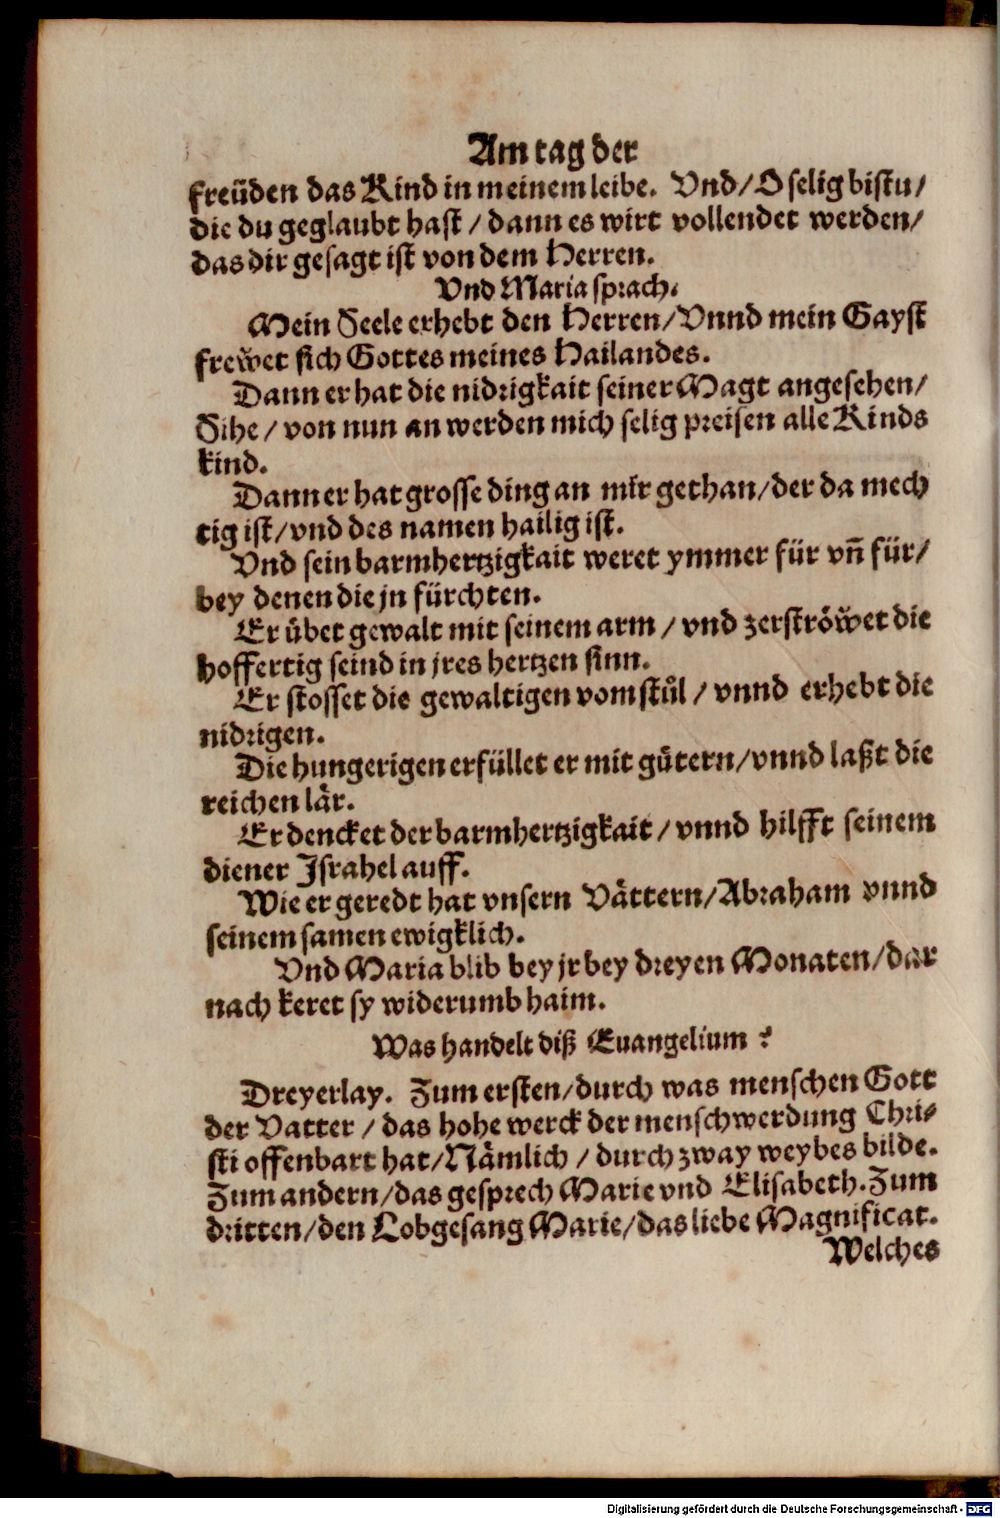 Am tag der
freüden das Kind in meinem leibe. Vnd/ O selig bistu/
die du geglaubt hast / dann es wirt vollendet werden/
das dir gesagt ist von dem Herren.
Vnd Maria sprach.
Mein Seele erhebt den Herren/ Vnnd mein Gayst
frewͤet sich Gottes meines Hailandes.
Dann er hat die nidrigkait seiner Magt angesehen/
Sihe / von nun an werden mich selig preisen alle Kinds
kind.
Dann er hat grosse ding an mir gethan/ der da mech
tig ist/ vnd des namen hailig ist.
Vnd sein barmhertzigkait weret ymmer für vn̄ für/
bey denen die jn fürchten.
Er uͤbet gewalt mit seinem arm / vnd zerstroͤwͤet die
hoffertig seind in jres hertzen sinn.
Er stosset die gewaltigen vom stuͦl / vnnd erhebt die
nidrigen.
Die hungerigen erfüllet er mit guͤtern/ vnnd laßt die
reichen laͤr.
Er dencket der barmhertzigkait / vnnd hilfft seinem
diener Jsrahel auff.
Wie er geredt hat vnsern Vaͤttern/ Abraham vnnd
seinem samen ewigklich.
Vnd Maria blib bey jr bey dreyen Monaten/ dar
nach keret sy widerumb haim.
Was handelt diß Euangelium ?
Dreyerlay. Zum ersten/ durch was menschen Gott
der Vatter / das hohe werck der menschwerdung Chri-
sti offenbart hat/ Naͤmlich / durch zway weybes bilde.
Zum andern/ das gesprech Marie vnd Elisabeth. Zum
dritten/ den Lobgesang Marie/ das liebe Magnificat.
Welches
Digitalisierung gefördert durch die Deutsche Forschungsgemeinschaft - DFG